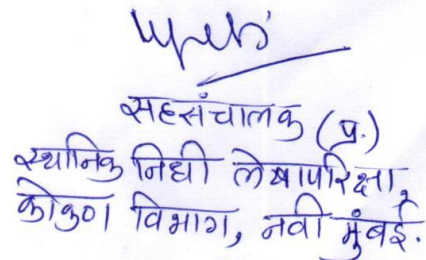 सहसंचालक (प्र.)
स्थानिक निधी लेखापरिक्षा,
कोकण विभाग, नवी मुंबई.